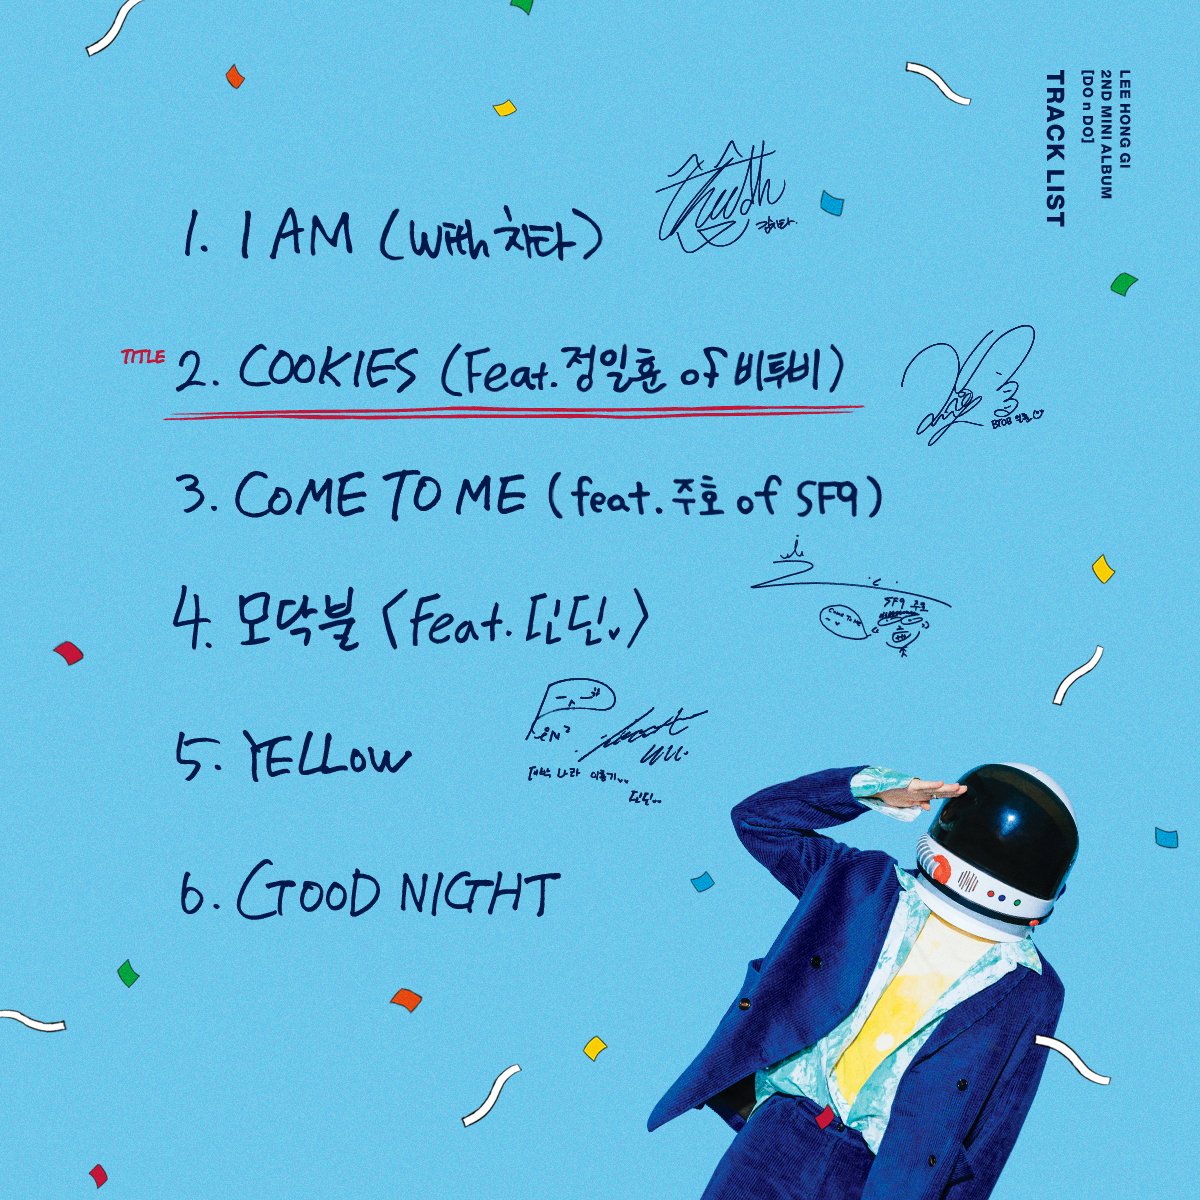 LEE HONG GI
2ND MINI ALBUM
[DO n DO]
TRACK LIST
1. I AM (With 치타)
김치타.
TITLE 2. COOKIES (Feat. 정일훈 of 비투비)
BTOB 일훈
3. COME TO ME (feat. 주호 of SF9)
SF9 주호
COME TO ME
4. 모닥불 <Feat. 딘딘>
5. YELLOW
이홍기
딘딘
6. GOOD NIGHT